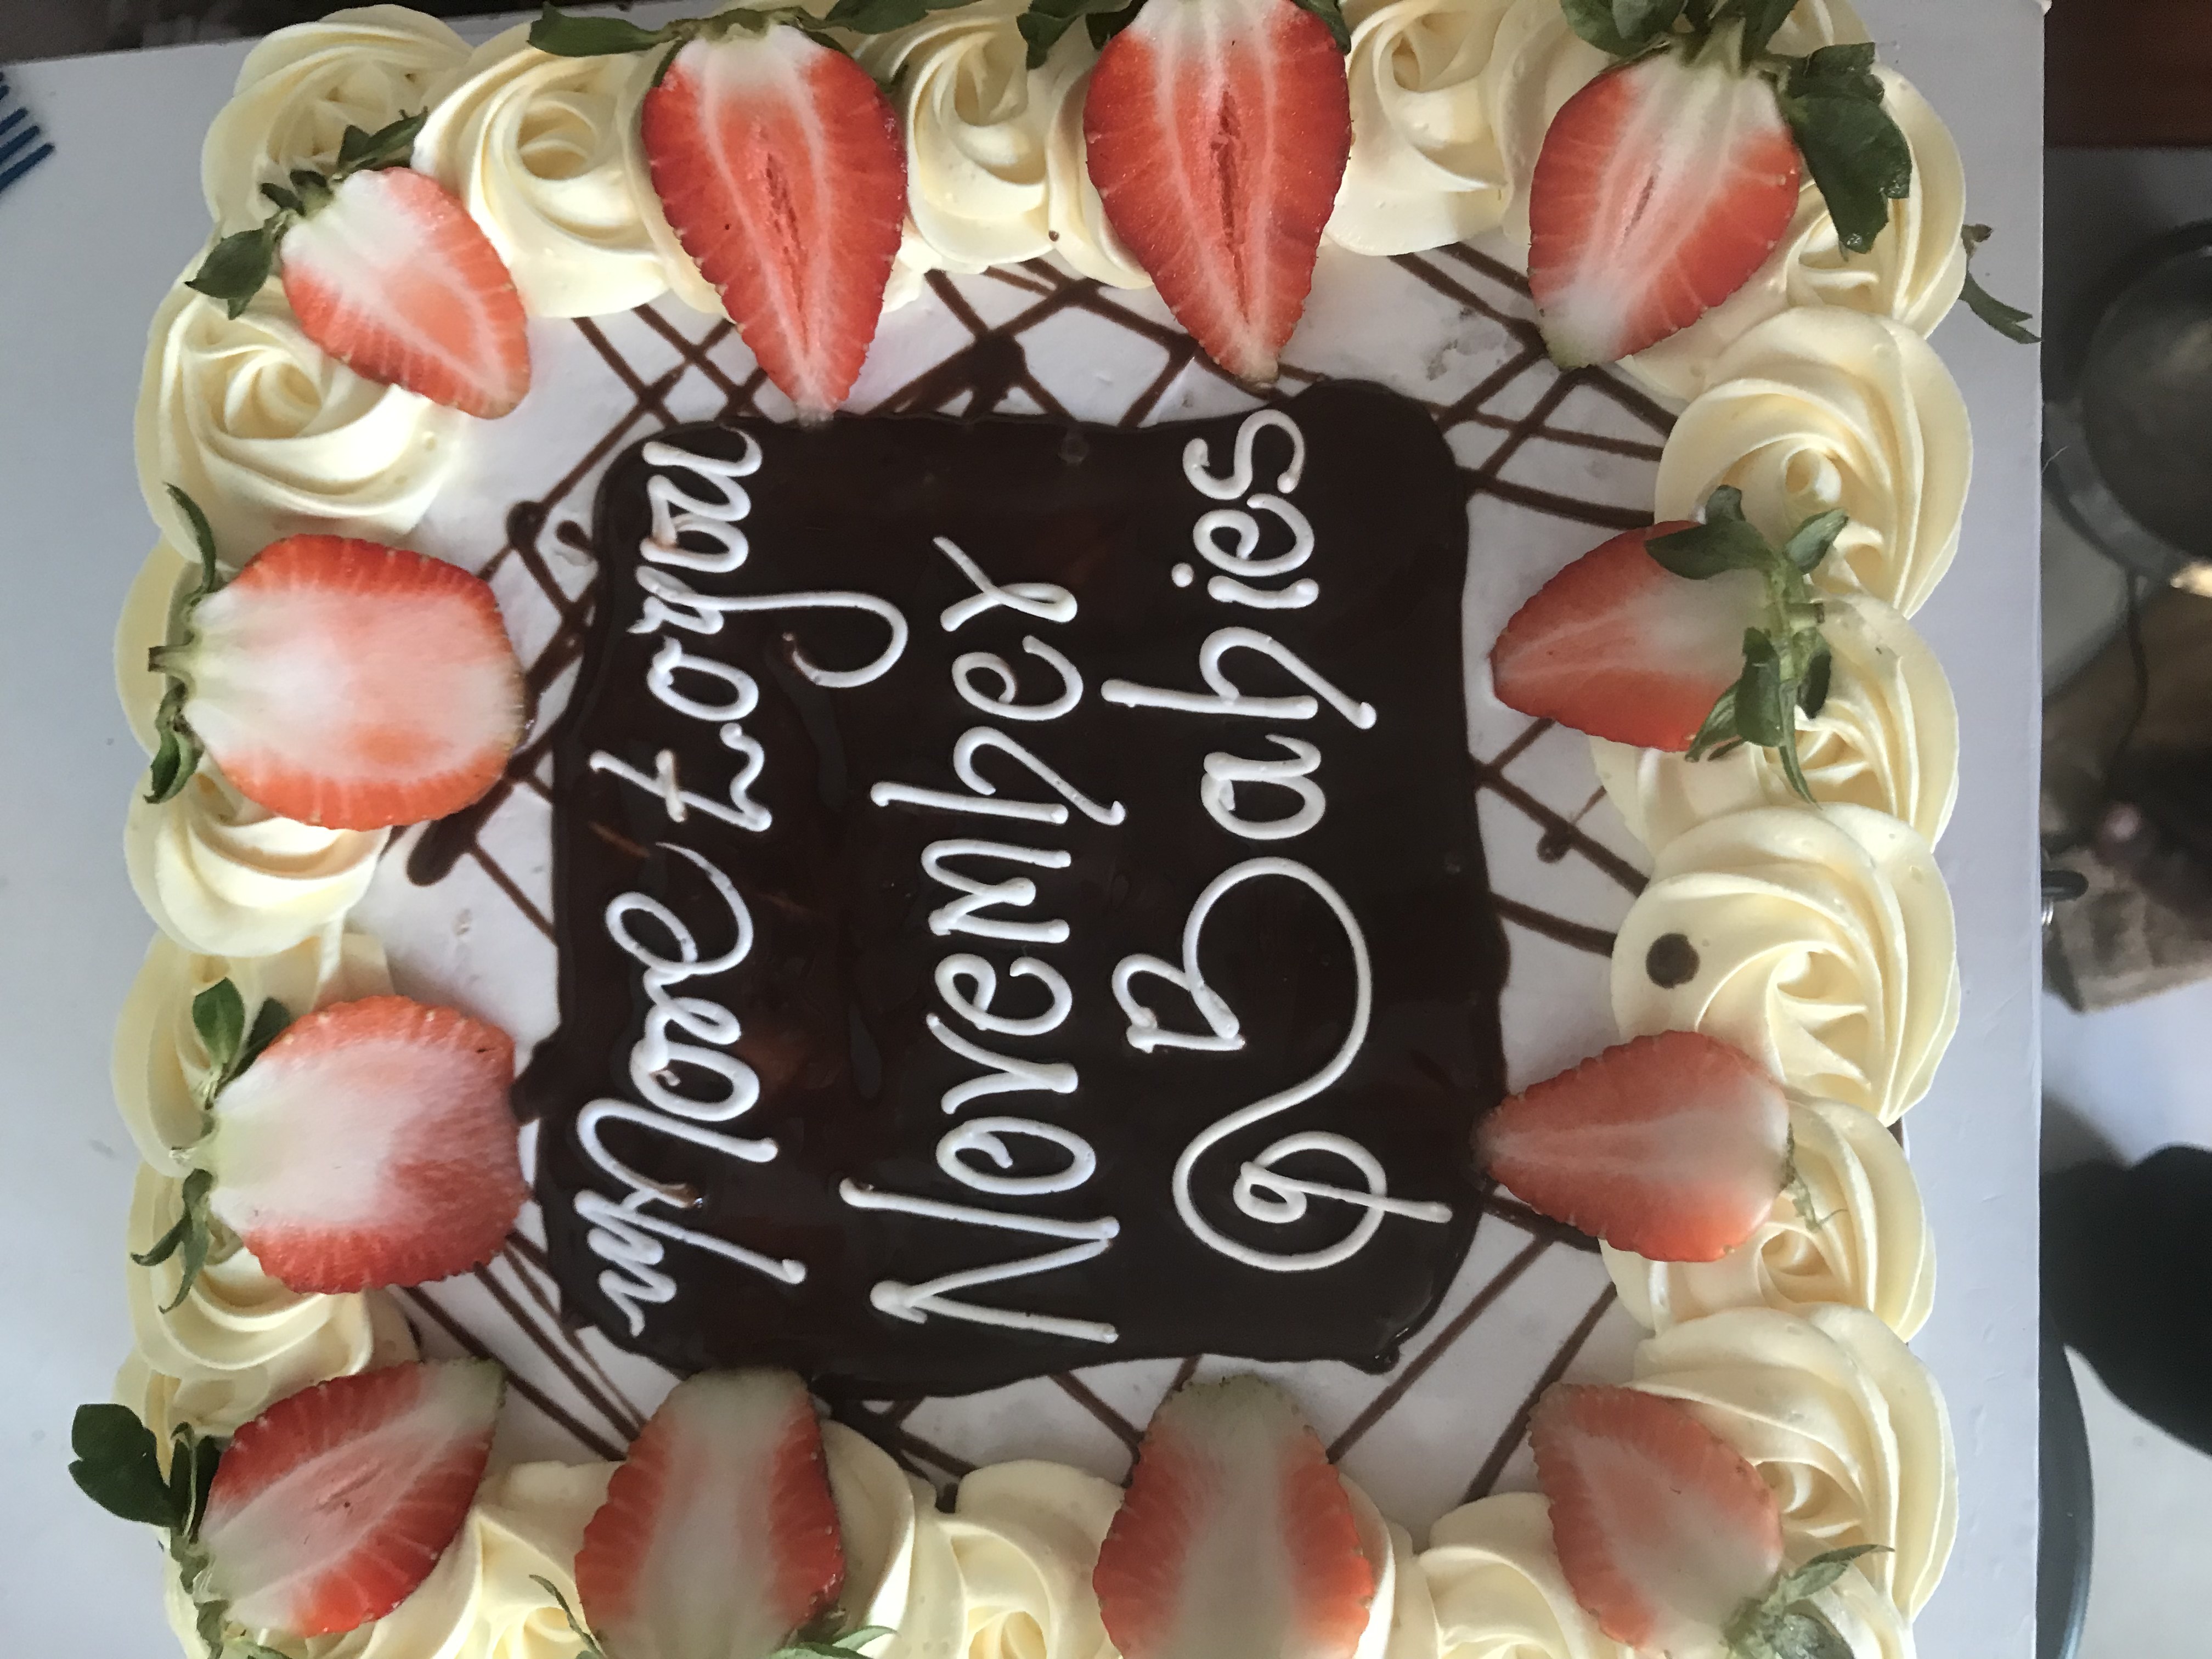 More to you
November
Babies